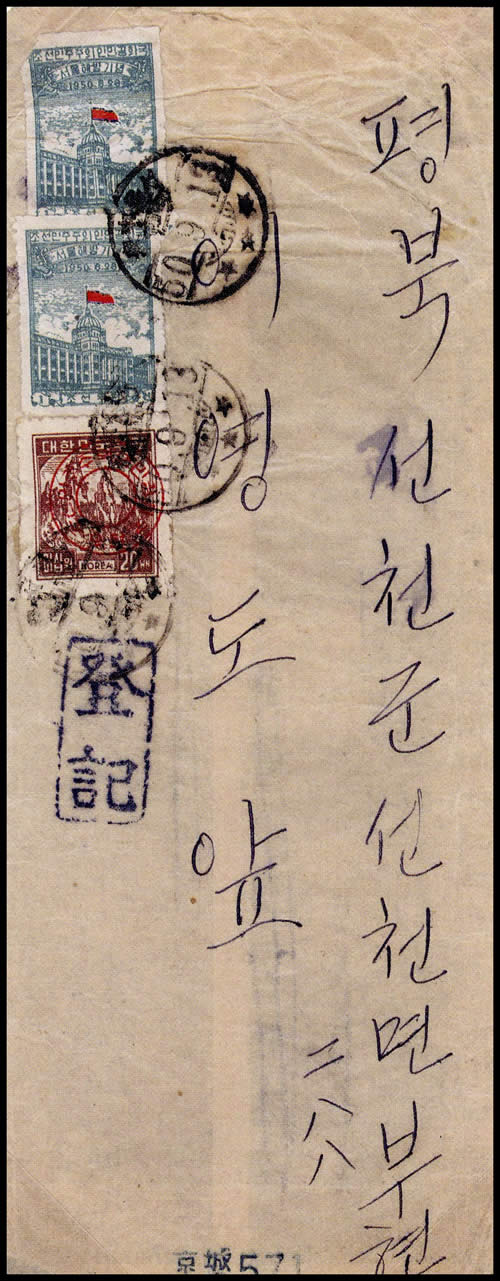 평북선천군선천면부현
二八
리명도앞
조선민주주의인민공화국
서울해방기념
1950.6.28
조선민주주의인민공화국
서울해방기념
1950.6.28
50.9.13
.9.13
대한민국
이십원
KOREA
20
登記
京城571